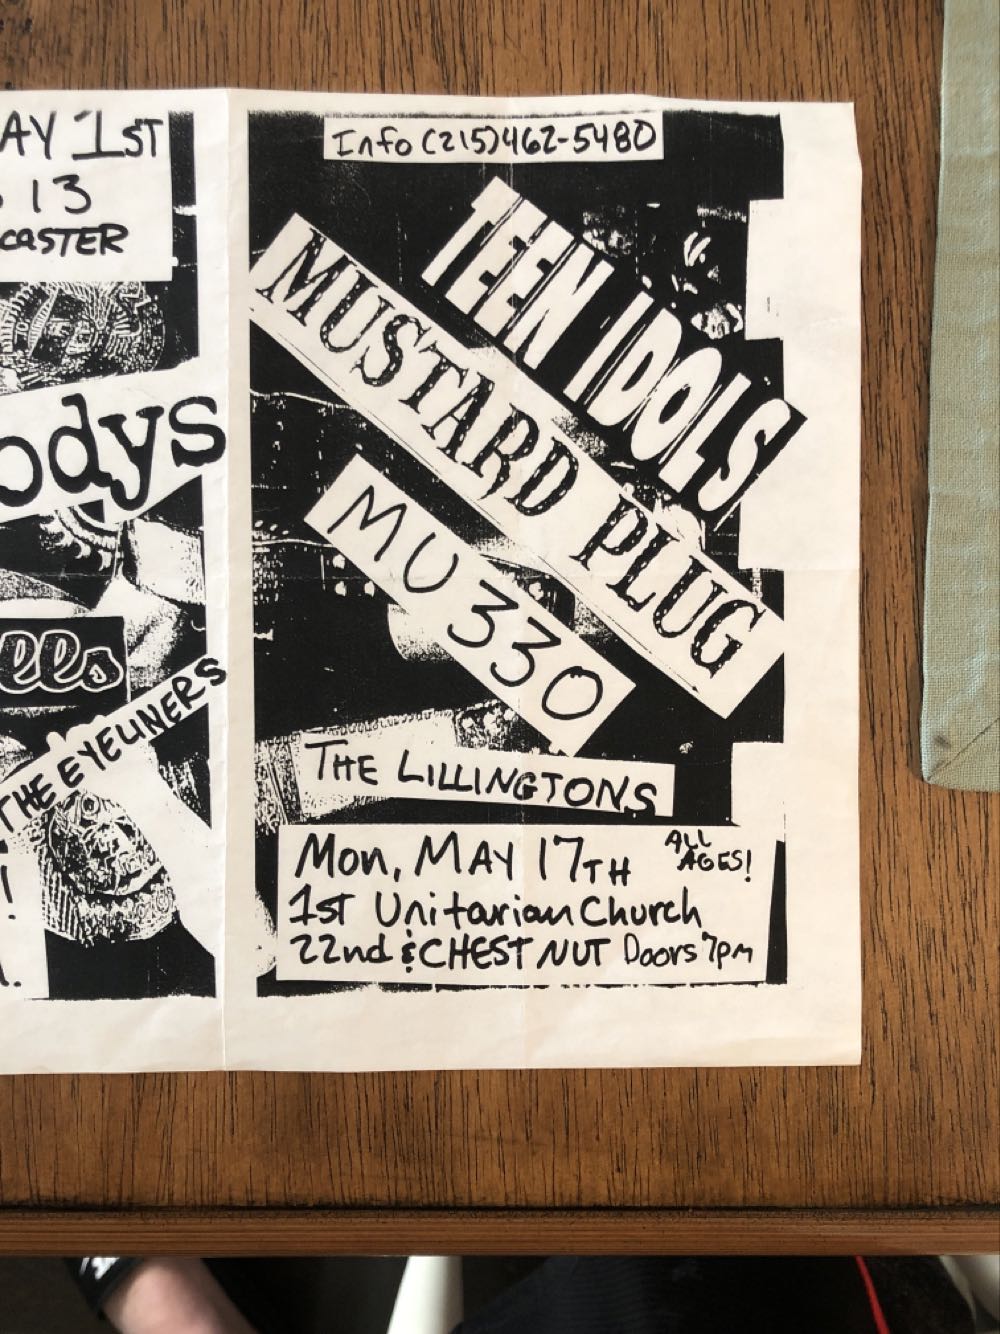 AY 1ST
13
CASTER
odys
ells
THE EYELINERS
!
Info (215)462-5480
TEEN IDOLS
MUSTARD PLUG
MU330
THE LILLINGTONS
Mon, MAY 17TH ALL AGES!
1ST Unitarian Church
22nd & CHESTNUT Doors 7pm